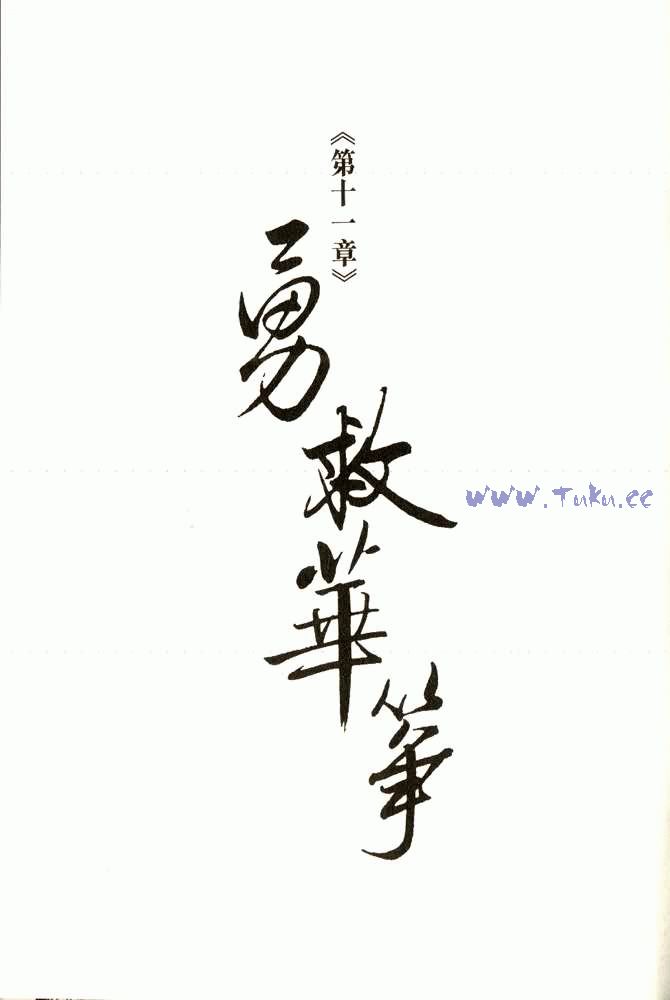 《第十一章》
勇救華箏
www.Tuku.cc